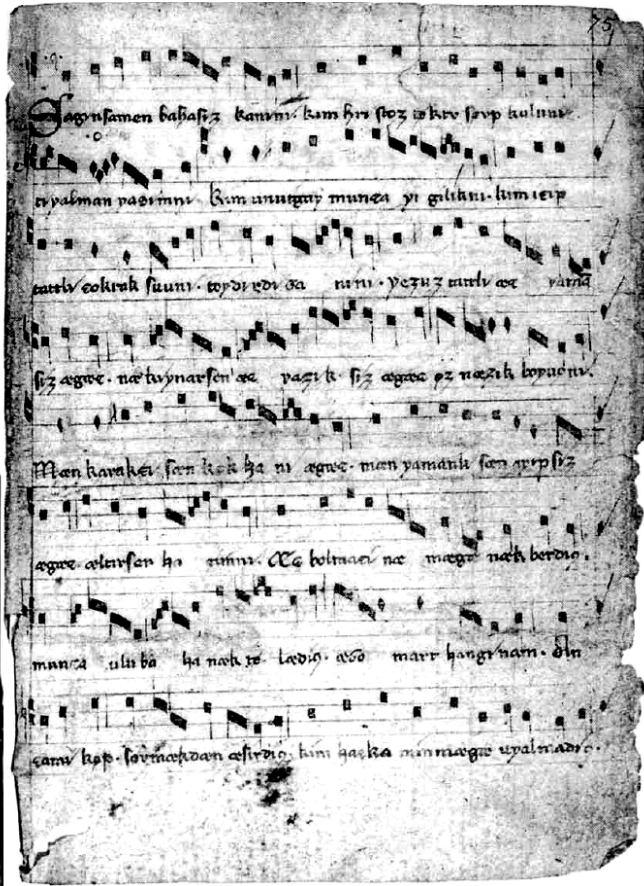 75
Saginsamen bahasiz kanini. kim hristoz tokty sevp kuluni
tiyalman yasimni. kim unutgay munca yi gilikni. kim icip
tattli cokrak suuni. toydi
yezuz tattli yamā
siz ægæc. næ kiynarsen yazik siz ægæc øz næzik boyucni.
Mæn karakci sæn kok ha ni ægæc. mæn yamanli sæn ayipsiz
ægæc. æltirsen ha bolmaci næ mægæ næk berdic.
munca ulu ba ha næk to lædic. mart hanginam.
cami kop. sovmækdæn æsirdic. kim haska minmægæ uyalmadic.